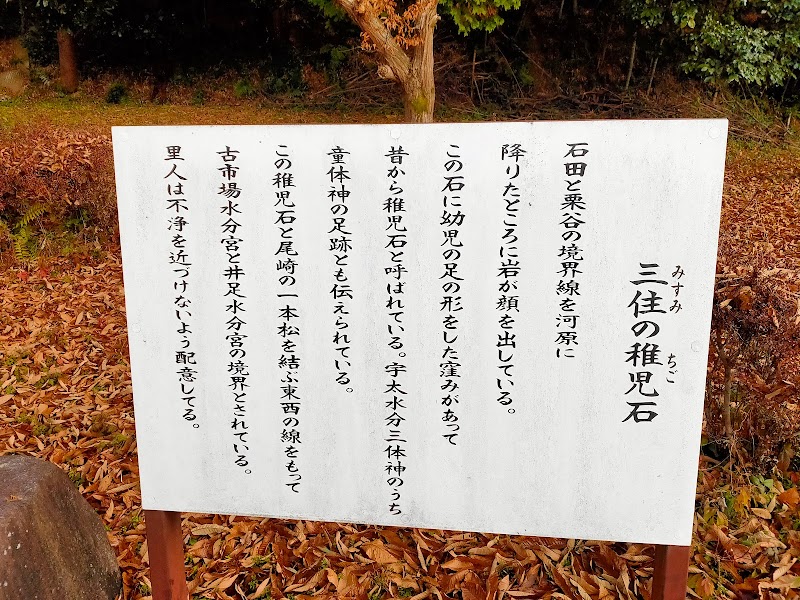 三住の稚児石
みすみ
ちご
石田と栗谷の境界線を河原に
降りたところに岩が顔を出している。
この石に幼児の足の形をした窪みがあって
昔から稚児石と呼ばれている。宇太水分三体神のうち
童体神の足跡とも伝えられている。
この稚児石と尾崎の一本松を結ぶ東西の線をもって
古市場水分宮と井足水分宮の境界とされている。
里人は不浄を近づけないよう配意してる。